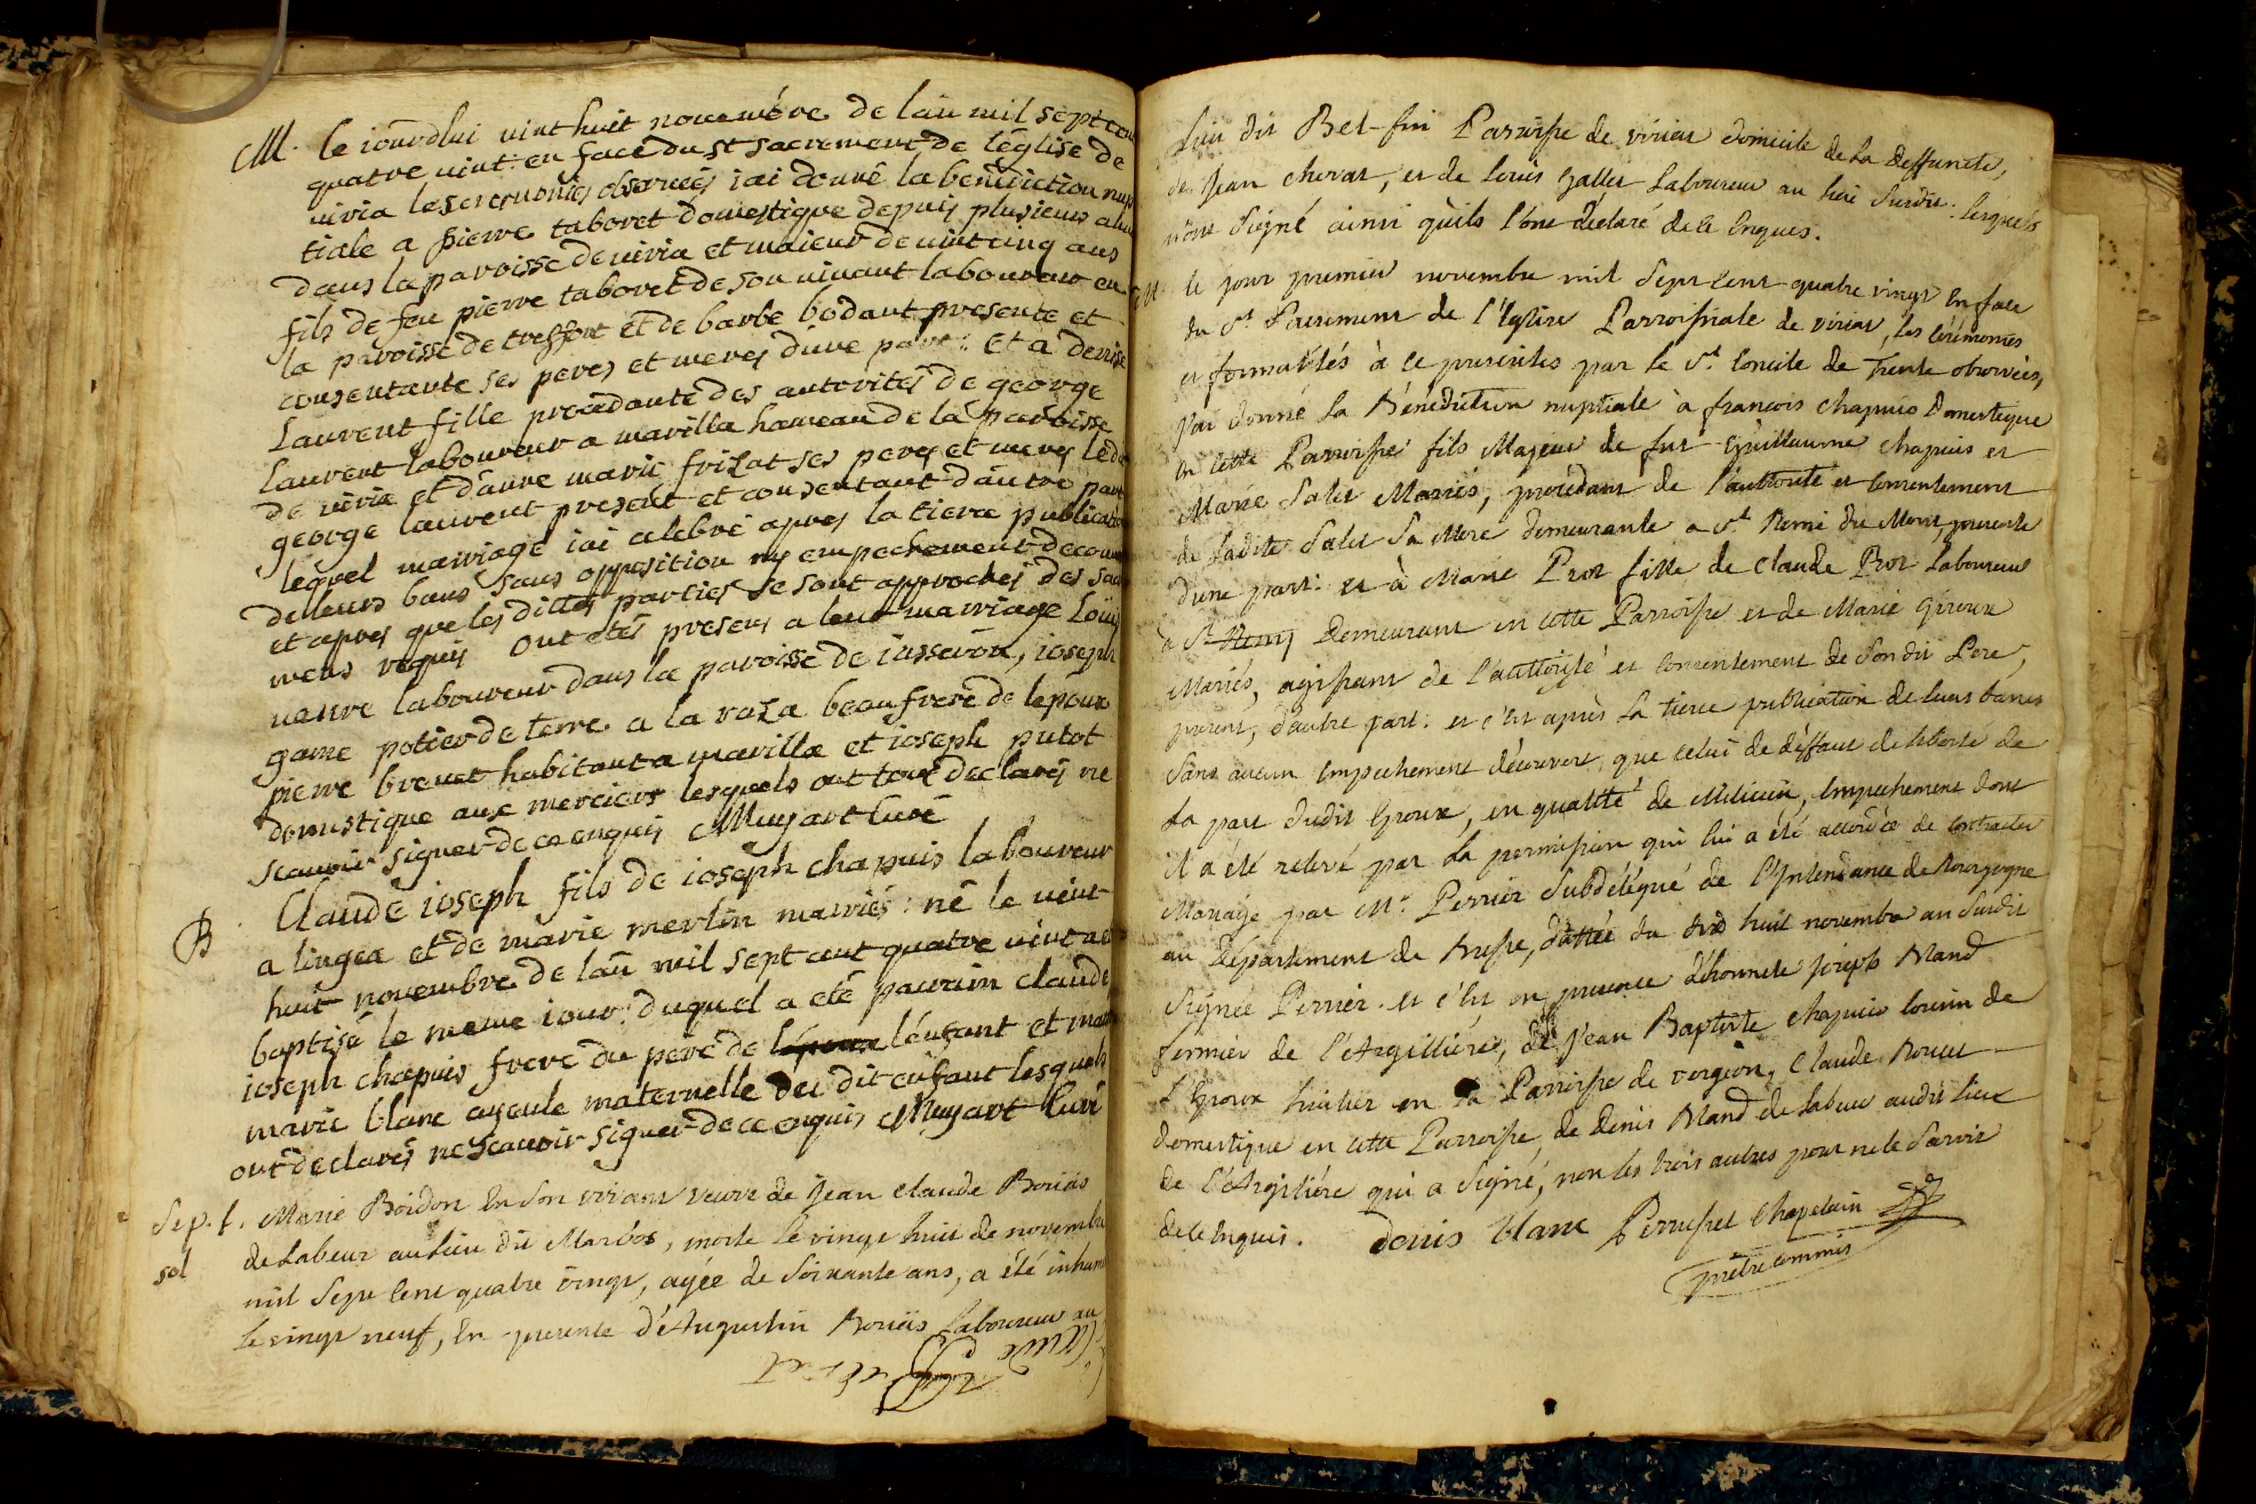 M. le iourdhui vint huit novembre de l'an mil sept cent
quatre vint: en face du st sacrement de l'église de
viria les ceremonies observées iai donné la benediction nup
tiale a pierre taboret domestique depuis plusieurs
dans la paroisse de viria et maieur de vint cinq ans
fils de feu pierre taboret de son vivant laboureur en
la paroisse de treffort et de barbe bodant presente et
consentante ses peres et meres d'une part: Et a denise
Laurent fille procedante des autorités de george
laurent laboureur a marilla hameau de la paroisse
de viria et d'anne marie frizat ses peres et meres ledit
george laurent present et consentant d'autre part
lequel mariage iai celebré apres la tierce publication
de leurs bans sans opposition ny empechement
et apres que les dittes parties se sont approchés des sacre
mens requis ont étés presens a leur marriage Louis
neuvre laboureur dans la paroisse de iasseron, ioseph
game potier de terre a la raza beaufrere de l'epoux
pierre brevet habitant a marilla et ioseph putot
domestique aux merciers lesquels ont tous declarés ne
scavoir signer de ce enquis Muyart Curé
B Claude ioseph fils de ioseph chapuis laboureur
a lingea et de marie merlin mariés: né le vint
huit novembre de l'an mil sept cent quatre vint
baptisé le meme iour: duquel a eté parrain claude
ioseph chapuis frere du pere de l'epoux l'enfant et
marie blanc ayeule maternelle du dit enfant lesquels
ont declarés ne scavoir signer de ce enquis Muyart Curé
Sep. f. Marie Boidon En son vivant veuve de Jean claude Bouüis
sol de Labeur au lieu dit Marbos, morte le vingt huit de novembre
mil Sept Cent quatre vingt, agée de Soixante ans, a été inhumé
le vingt neuf, En presence d'Augustin Bouüis Laboureur au
Lieu dit Bel-fin Parroisse de viriat domicile de La deffuncte,
de Jean chevat, et de Louis Gallet Laboureur au lieu Susdit: lesquels
n'ont Signé ainsi qu'ils l'ont déclaré de ce Enquis.
M. le jour premier novembre mil Sept Cent quatre vingt En face
du St Sacrement de l'Eglise Parroissiale de viriat, les cérémonies
et formalités à ce prescrites par le St Concile de Trente observées,
j'ai donné La Bénédiction nuptiale à francois chapuis Domestique
en cette Parroisse fils Majeur de fut Guillaume chapuis et
Marie Salet Mariés, procédant de l'authorité et consentement
de Ladite Salet Sa Mere demeurante a St Remi du Mont, presente
d'une part: et à Marie Prot fille de Claude Prot Laboureur
à St Remy Demeurant en cette Parroisse et de Marie Giroux
Mariés, agissant de l'authorité et consentement de Son dit Pere,
present, d'autre part: et c'est après La tierce publication de leurs bancs
Sans aucun Empechement découvert, que celui de déffaut de liberté de
La part dudit Epoux, en qualité de Milicien, Empechement dont
il a été relevé par La permission qui lui a été accordée de contracter
Mariage par Mr. Perrier Subdélégué de l'Intendance de Bourgogne
au Département de Bresse, dattée du dix huit novembre an Susdit
Signée Perrier. et c'est en presence d'honnete joseph Bland
fermier de l'Argilliére, de Jean Baptiste chapuis Cousin de
l'Epoux huitier en La Parroisse de vergeon, Claude Bouvet
domestique en cette Parroisse, de Denis Bland de Labeur audit lieux
de l'Argiliére qui a Signé, non les trois autres pour ne le Savoir
de ce Enquis. denis blanc Perruquet Chapelain
prêtre commis